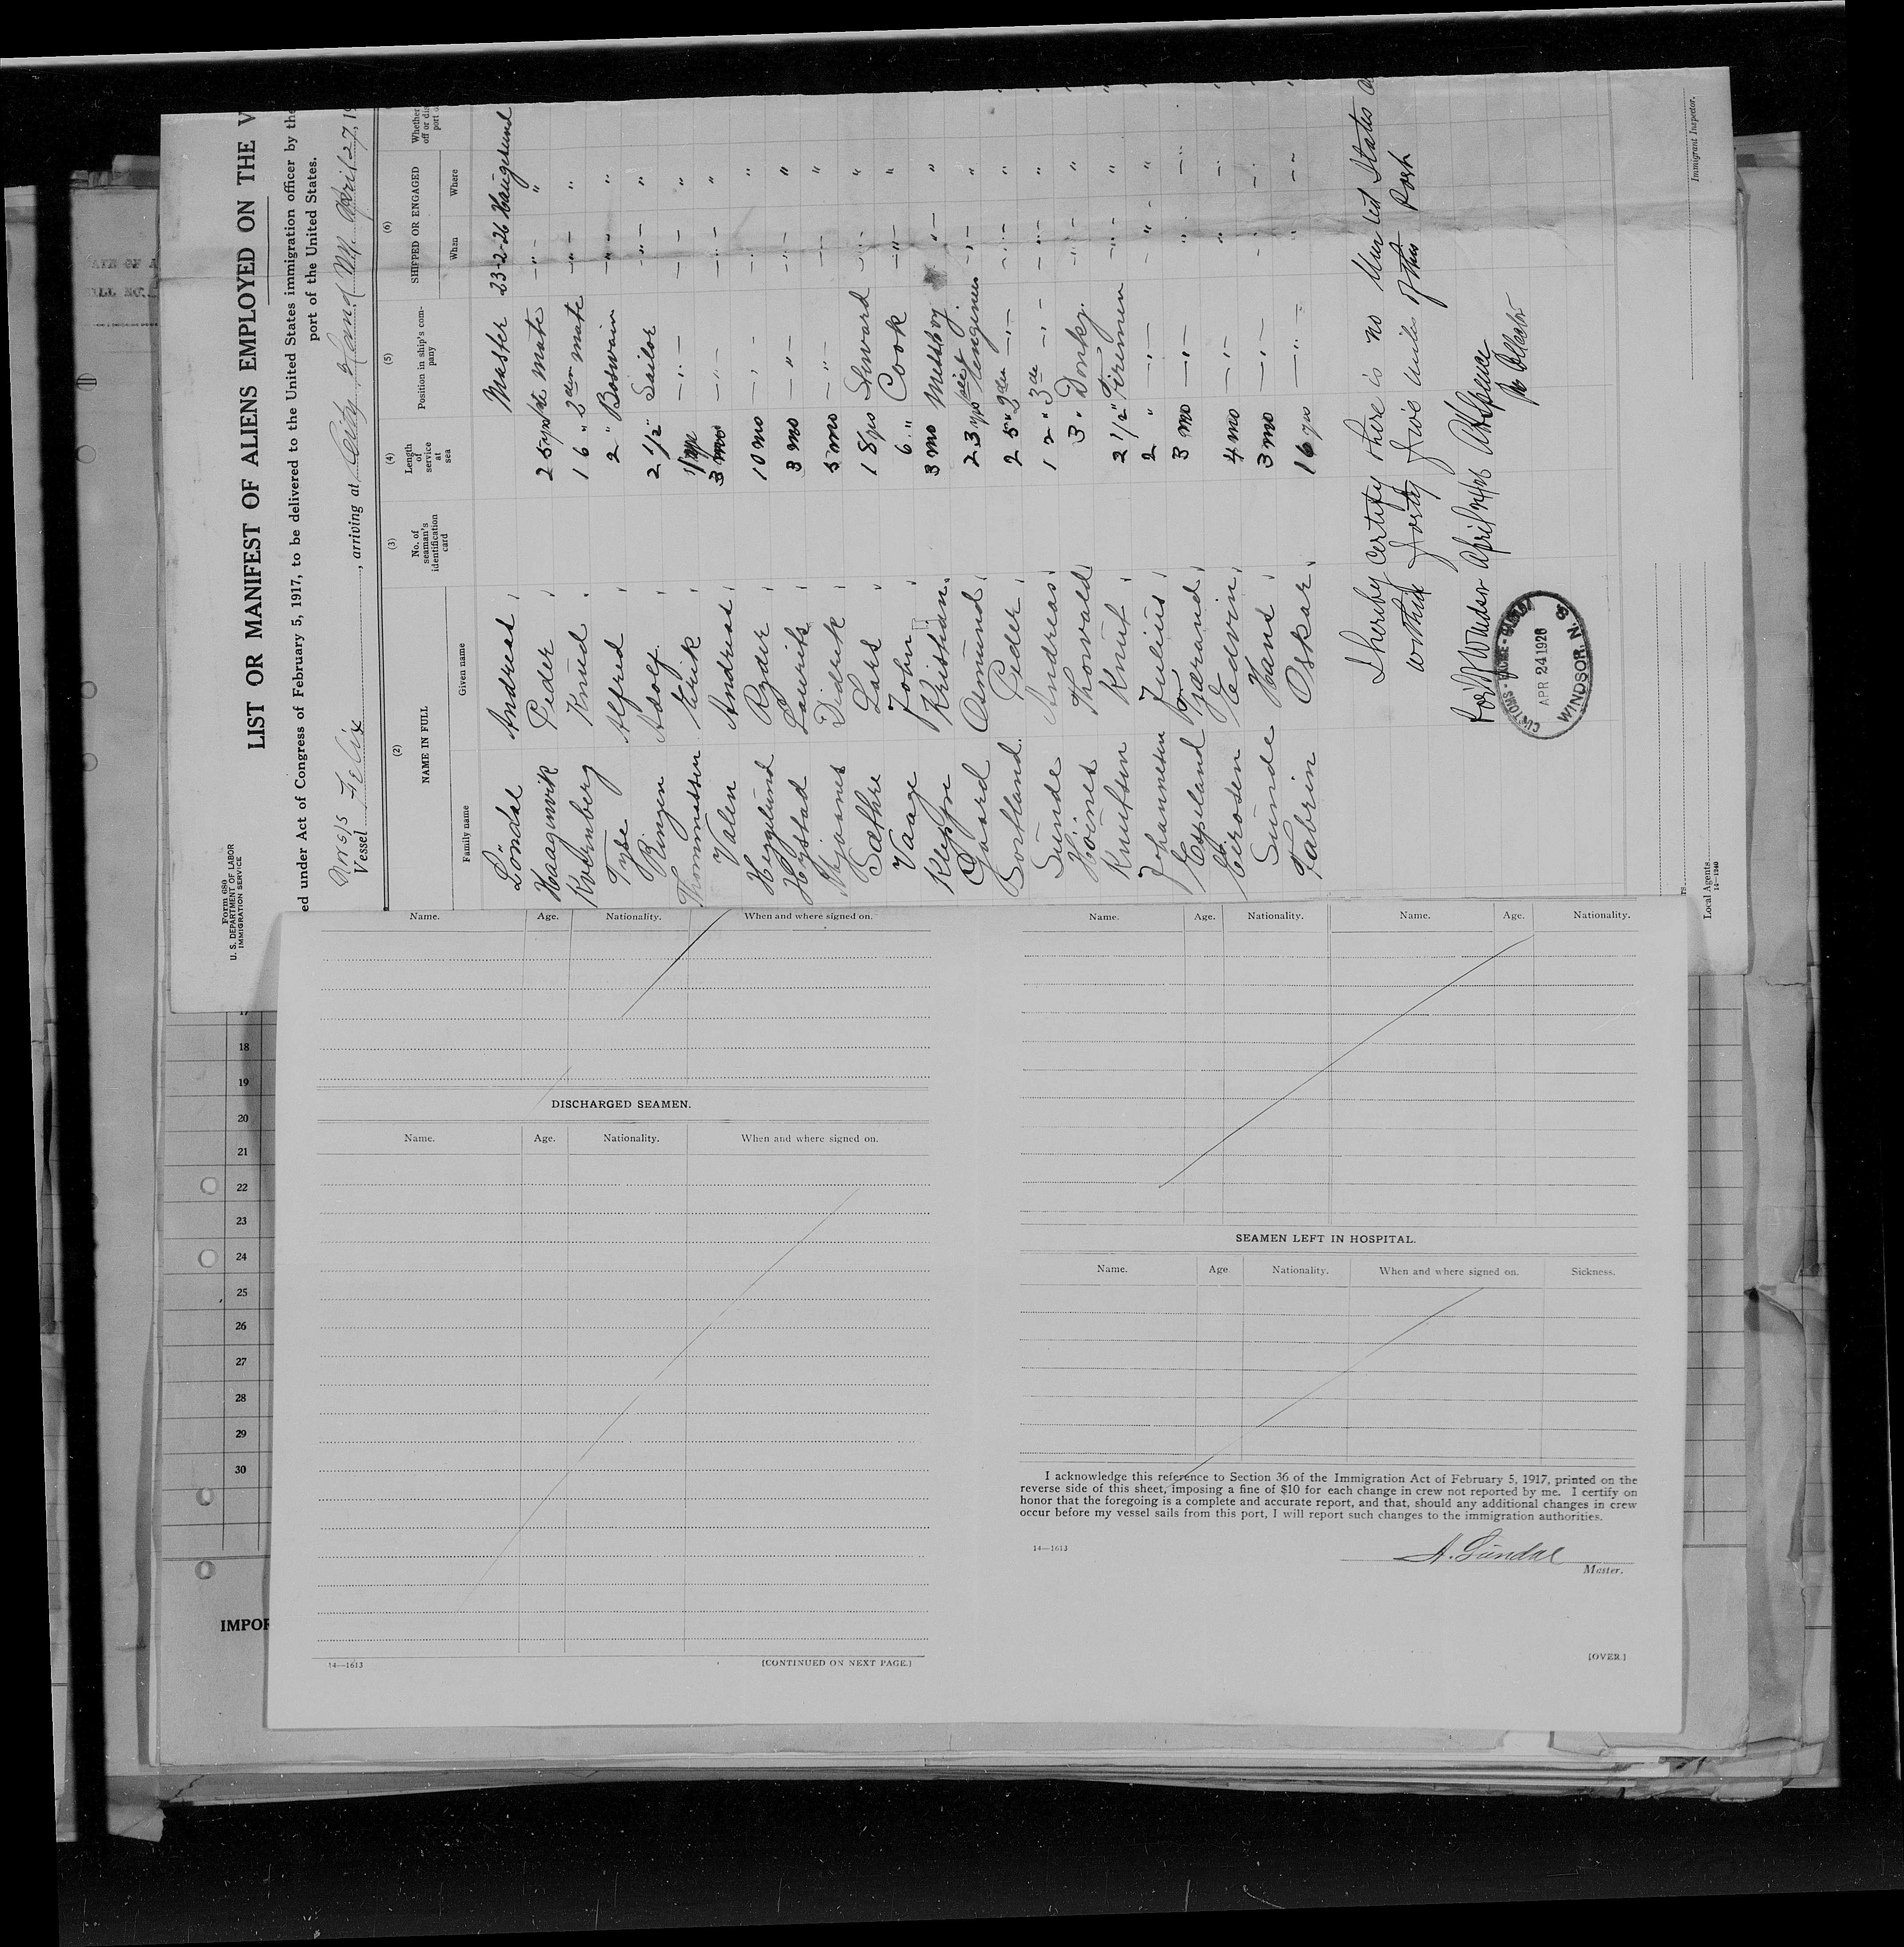 Form 680
U. S. DEPARTMENT OF LABOR
IMMIGRATION SERVICE
LIST OR MANIFEST OF ALIENS EMPLOYED ON THE V
ed under Act of Congress of February 5, 1917, to be delivered to the United States immigration officer by the
port of the United States.
Vessel Felix, arriving at City Island N.Y. April 27, 19
(2) (3) (4) (5) (6)
NAME IN FULL No. of seaman's identification card Length of service at sea Position in ship's company SHIPPED OR ENGAGED Whether
Family name Given name When Where
Andreas Master 23-2-26 Haugesund
Haagenvik Peder 25 yrs 1ste mate " "
Kvernberg Knud 16 " 2den mate " "
Alfred 2 " Bosvain " "
Ringen Adolf 2 1/2 " Sailor " "
Thommassen Erik " " "
Valen Andreas 3 mo " " "
Ryder 10 mo " " "
Hystad Laurits 3 mo " " "
Didrik 5 mo " " "
Sæthre Lars 18 yrs Steward " "
Vaage John 6 " Cook " "
Kleppe Kristian 3 mo Messboy " "
Gaard Osmund 23 yrs " "
Bortland Peder 25 " 2den " " "
Sunde Andreas 12 " 3de " " "
Thorvald 3 " Donky. " "
Knutsen Knut 2 1/2 " Firemen " "
Johannesen Julius 2 " " " "
Espeland 3 mo " " "
Edvin 4 mo " " "
Sunde Hans 3 mo " " "
Fabrin Oskar 16 yrs " " "
I hereby certify there is no United States
within forty five miles of this Port
Windsor April
Collector
CUSTOMS
APR 24 1926
WINDSOR, N. S.
Immigrant Inspector.
Local Agents
14—1240
Name. Age. Nationality. When and where signed on.
DISCHARGED SEAMEN.
Name. Age. Nationality. When and where signed on.
14—1613 [CONTINUED ON NEXT PAGE.]
Name. Age. Nationality. Name. Age. Nationality.
SEAMEN LEFT IN HOSPITAL.
Name. Age. Nationality. When and where signed on. Sickness.
I acknowledge this reference to Section 36 of the Immigration Act of February 5, 1917, printed on the
reverse side of this sheet, imposing a fine of $10 for each change in crew not reported by me. I certify on
honor that the foregoing is a complete and accurate report, and that, should any additional changes in crew
occur before my vessel sails from this port, I will report such changes to the immigration authorities.
14—1613
Master.
[OVER.]
17
18
19
20
21
22
23
24
25
26
27
28
29
30
IMPOR